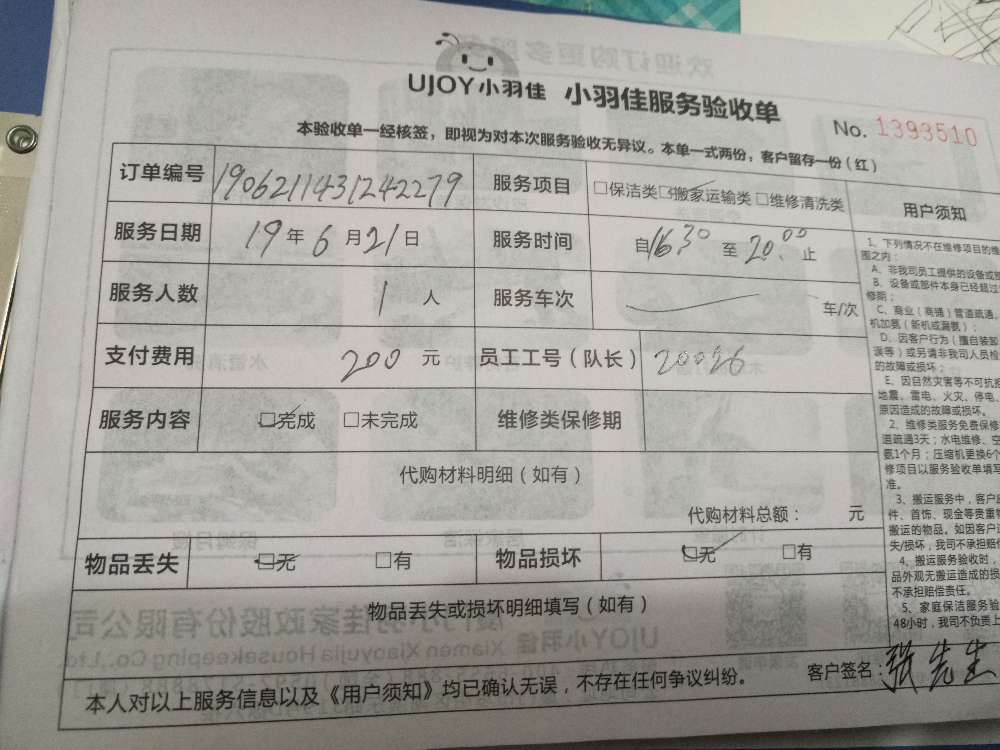 UJOY小羽佳 小羽佳服务验收单
No. 1393510
本验收单一经核签，即视为对本次服务验收无异议。本单一式两份，客户留存一份（红）
订单编号 1906211431242279 服务项目 □保洁类□搬家运输类□维修清洗类
服务日期 19年6月21日 服务时间 自16:30至20:00止
服务人数 1人 服务车次 车/次
支付费用 200元 员工工号（队长） 20026
服务内容 □完成 □未完成 维修类保修期
代购材料明细（如有）
代购材料总额： 元
物品丢失 □无 □有 物品损坏 □无 □有
物品丢失或损坏明细填写（如有）
客户签名：张先生
本人对以上服务信息以及《用户须知》均已确认无误，不存在任何争议纠纷。
用户须知
1、下列情况不在维修项目的维
围之内：
A、非我司员工提供的设备或
B、设备或部件本身已经超过
修期；
C、商业（商铺）管道疏通、
机加氨（新机或漏氨）；
D、因客户行为（擅自装卸
误等）或另请非我司人员检
的故障或损坏；
E、因自然灾害等不可抗拒
地震、雷电、火灾、停电、
原因造成的故障或损坏。
2、维修类服务免费保修
道疏通3天；水电维修、空
氨1个月；压缩机更换6个
修项目以服务验收单填写
准。
3、搬运服务中，客户
件、首饰、现金等贵重物
搬运的物品。如因客户
失/损坏，我司不承担赔
4、搬运服务验收时，
品外观无搬运造成的损
不承担赔偿责任。
5、家庭保洁服务验
48小时，我司不负责上